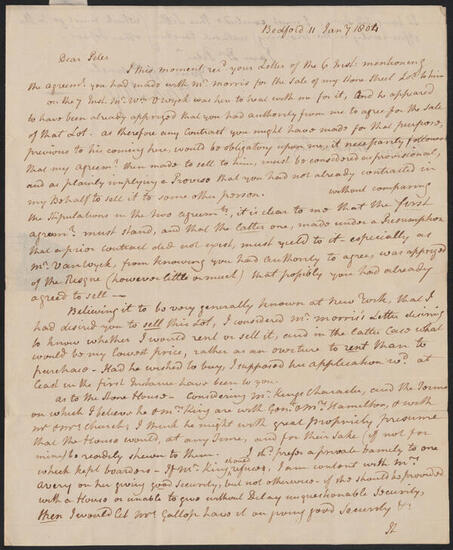 Bedford 11 Jany 1804
Dear Peter
I this moment recd your Letter of the 6 Inst. mentioning
the agreemt you had made with Mr Morris for the sale of my Stone Street Lot to him
on the 7 Inst. Mr Wm Vanwyck was here to treat with me for it, and he appeared
to have been already apprized that you had authority from me to agree for the Sale
of that Lot. as therefore any Contract you might have made for that purpose,
previous to his coming here, would be obligatory upon me, it necessarily followed
that my Agreemt then made to sell to him, must be considered as provisional,
and as plainly implying a Proviso that you had not already contracted in
my Behalf to sell it to some other person. without comparing
the Stipulations in the two agreemts, it is clear to me that the first
agreemt must stand, and that the latter one, made under a Presumption
that a prior contract did not exist, must yield to it - especially as
Mr Vanwyck, from knowing you had authority to agree, was apprized
of the Risque (however little or much) that possibly you had already
agreed to sell —
Believing it to be very generally known at New York, that I
had desired you to sell this Lot, I considered Mr Morris's Letter desiring
to know whether I would rent or sell it, and in the latter Case what
would be my lowest price, rather as an overture to rent than to
purchase - Had he wished to buy, I supposed his application wd at
least in the first Instance have been to you.
as to the Stone House - Considering Mr Kings Character, and the Terms
on which I believe he & Mrs King are with Genl & Mrs Hamilton, & with
Mr & Mrs Church, I think he might with great propriety presume
that the House would, at any Time, and for their Sake (if not for
mine) be readily shewn to them. I shd prefer a private family to one
which kept boarders - If Mr King refuses, I am content with Mrs
Avery on her giving good Security, but not otherwise - if she should be provided
with a House or unable to give without Delay unquestionable Security,
then I would let Mrs Gallop have it on giving good Security &c
It